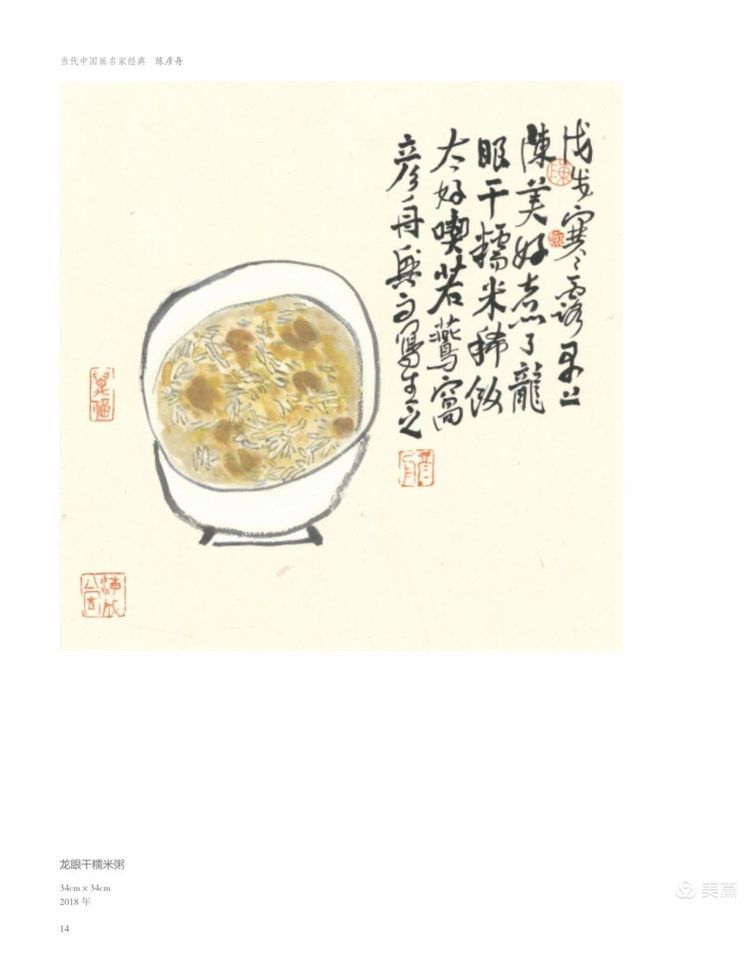 当代中国画名家经典 陈彦舟
戊戌寒露早上
陳美好煮了龍
眼干糯米稀飯
太好喫若鷰窩
彦舟興而寫生之
龙眼干糯米粥
34cm × 34cm
2018 年
14
美篇